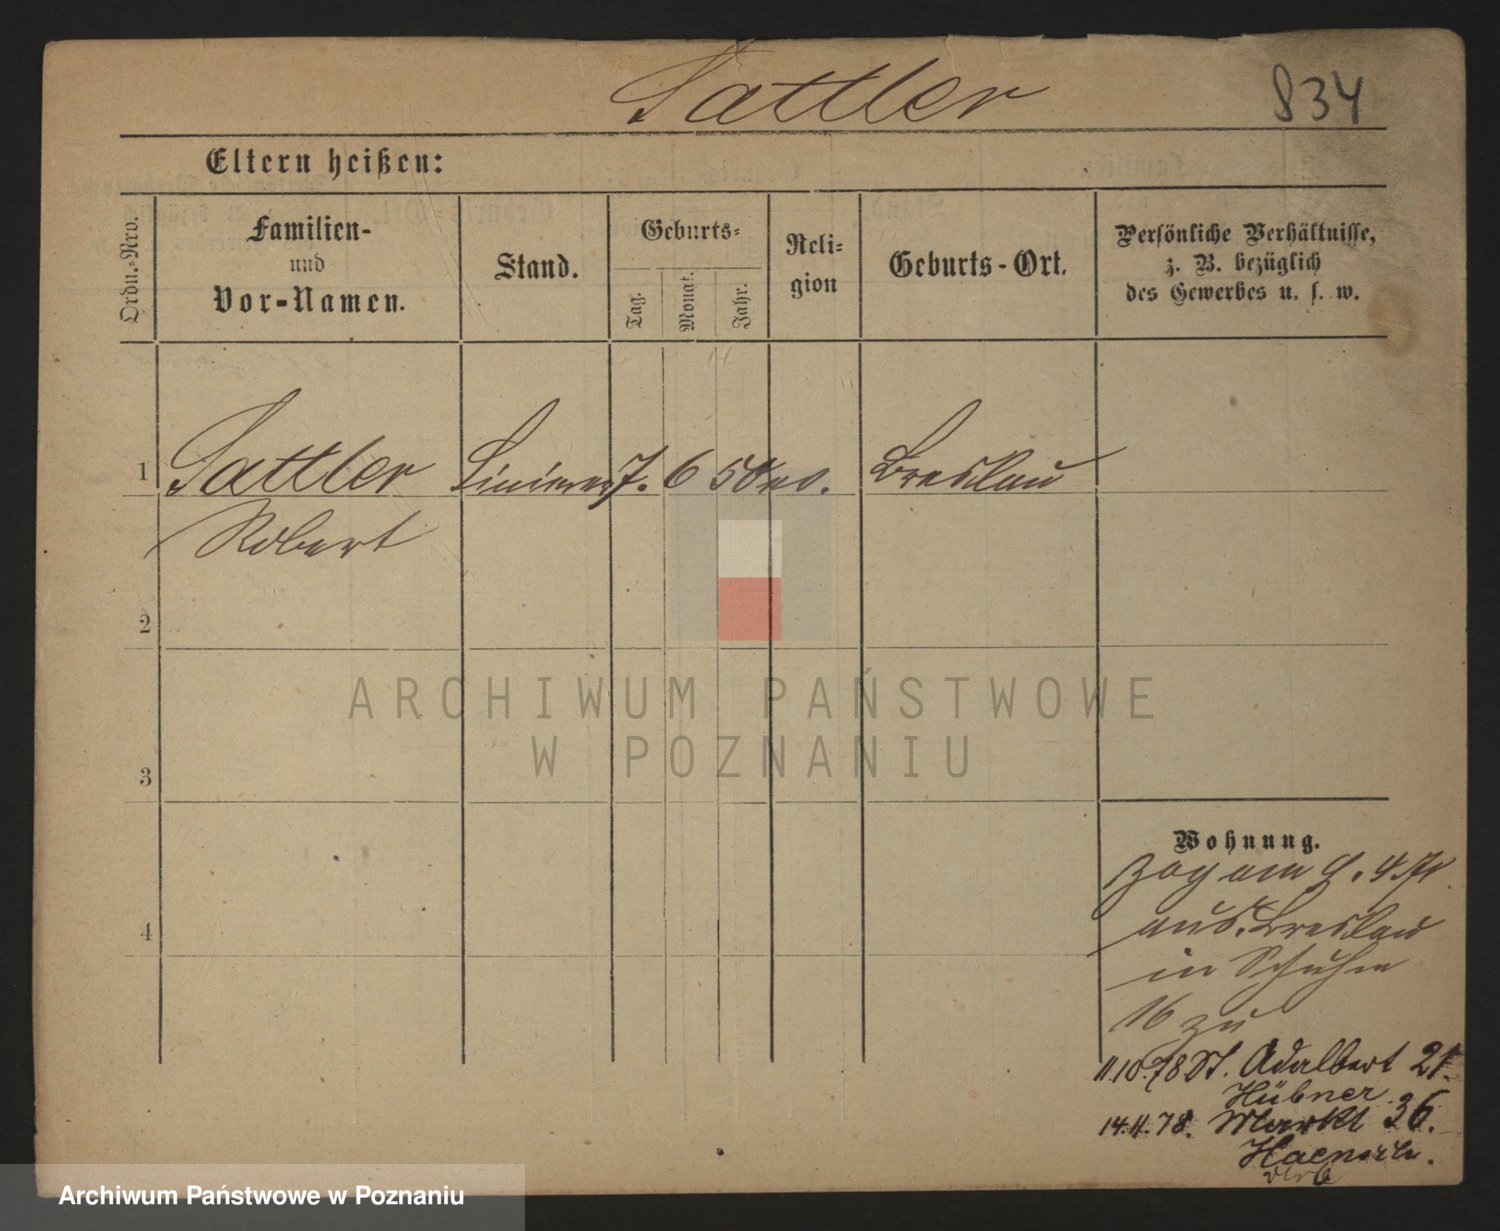 Sattler
834
Eltern heißen:
Ordn.-Nro.
Familien-
und
Vor-Namen.
Stand.
Geburts-
Tag.
Monat.
Jahr.
Reli-
gion
Geburts-Ort.
Persönliche Verhältnisse,
z. B. bezüglich
des Gewerbes u. s. w.
1 Sattler 7. 6 50 ev. Breslau
Robert
2
3
4
Wohnung.
Zog am 4.
aus Breslau
in
16 zu
11.10.78 St. Adalbert 21.
Hübner
14.11.78. Markt 36.
ARCHIWUM PAŃSTWOWE
W POZNANIU
Archiwum Państwowe w Poznaniu